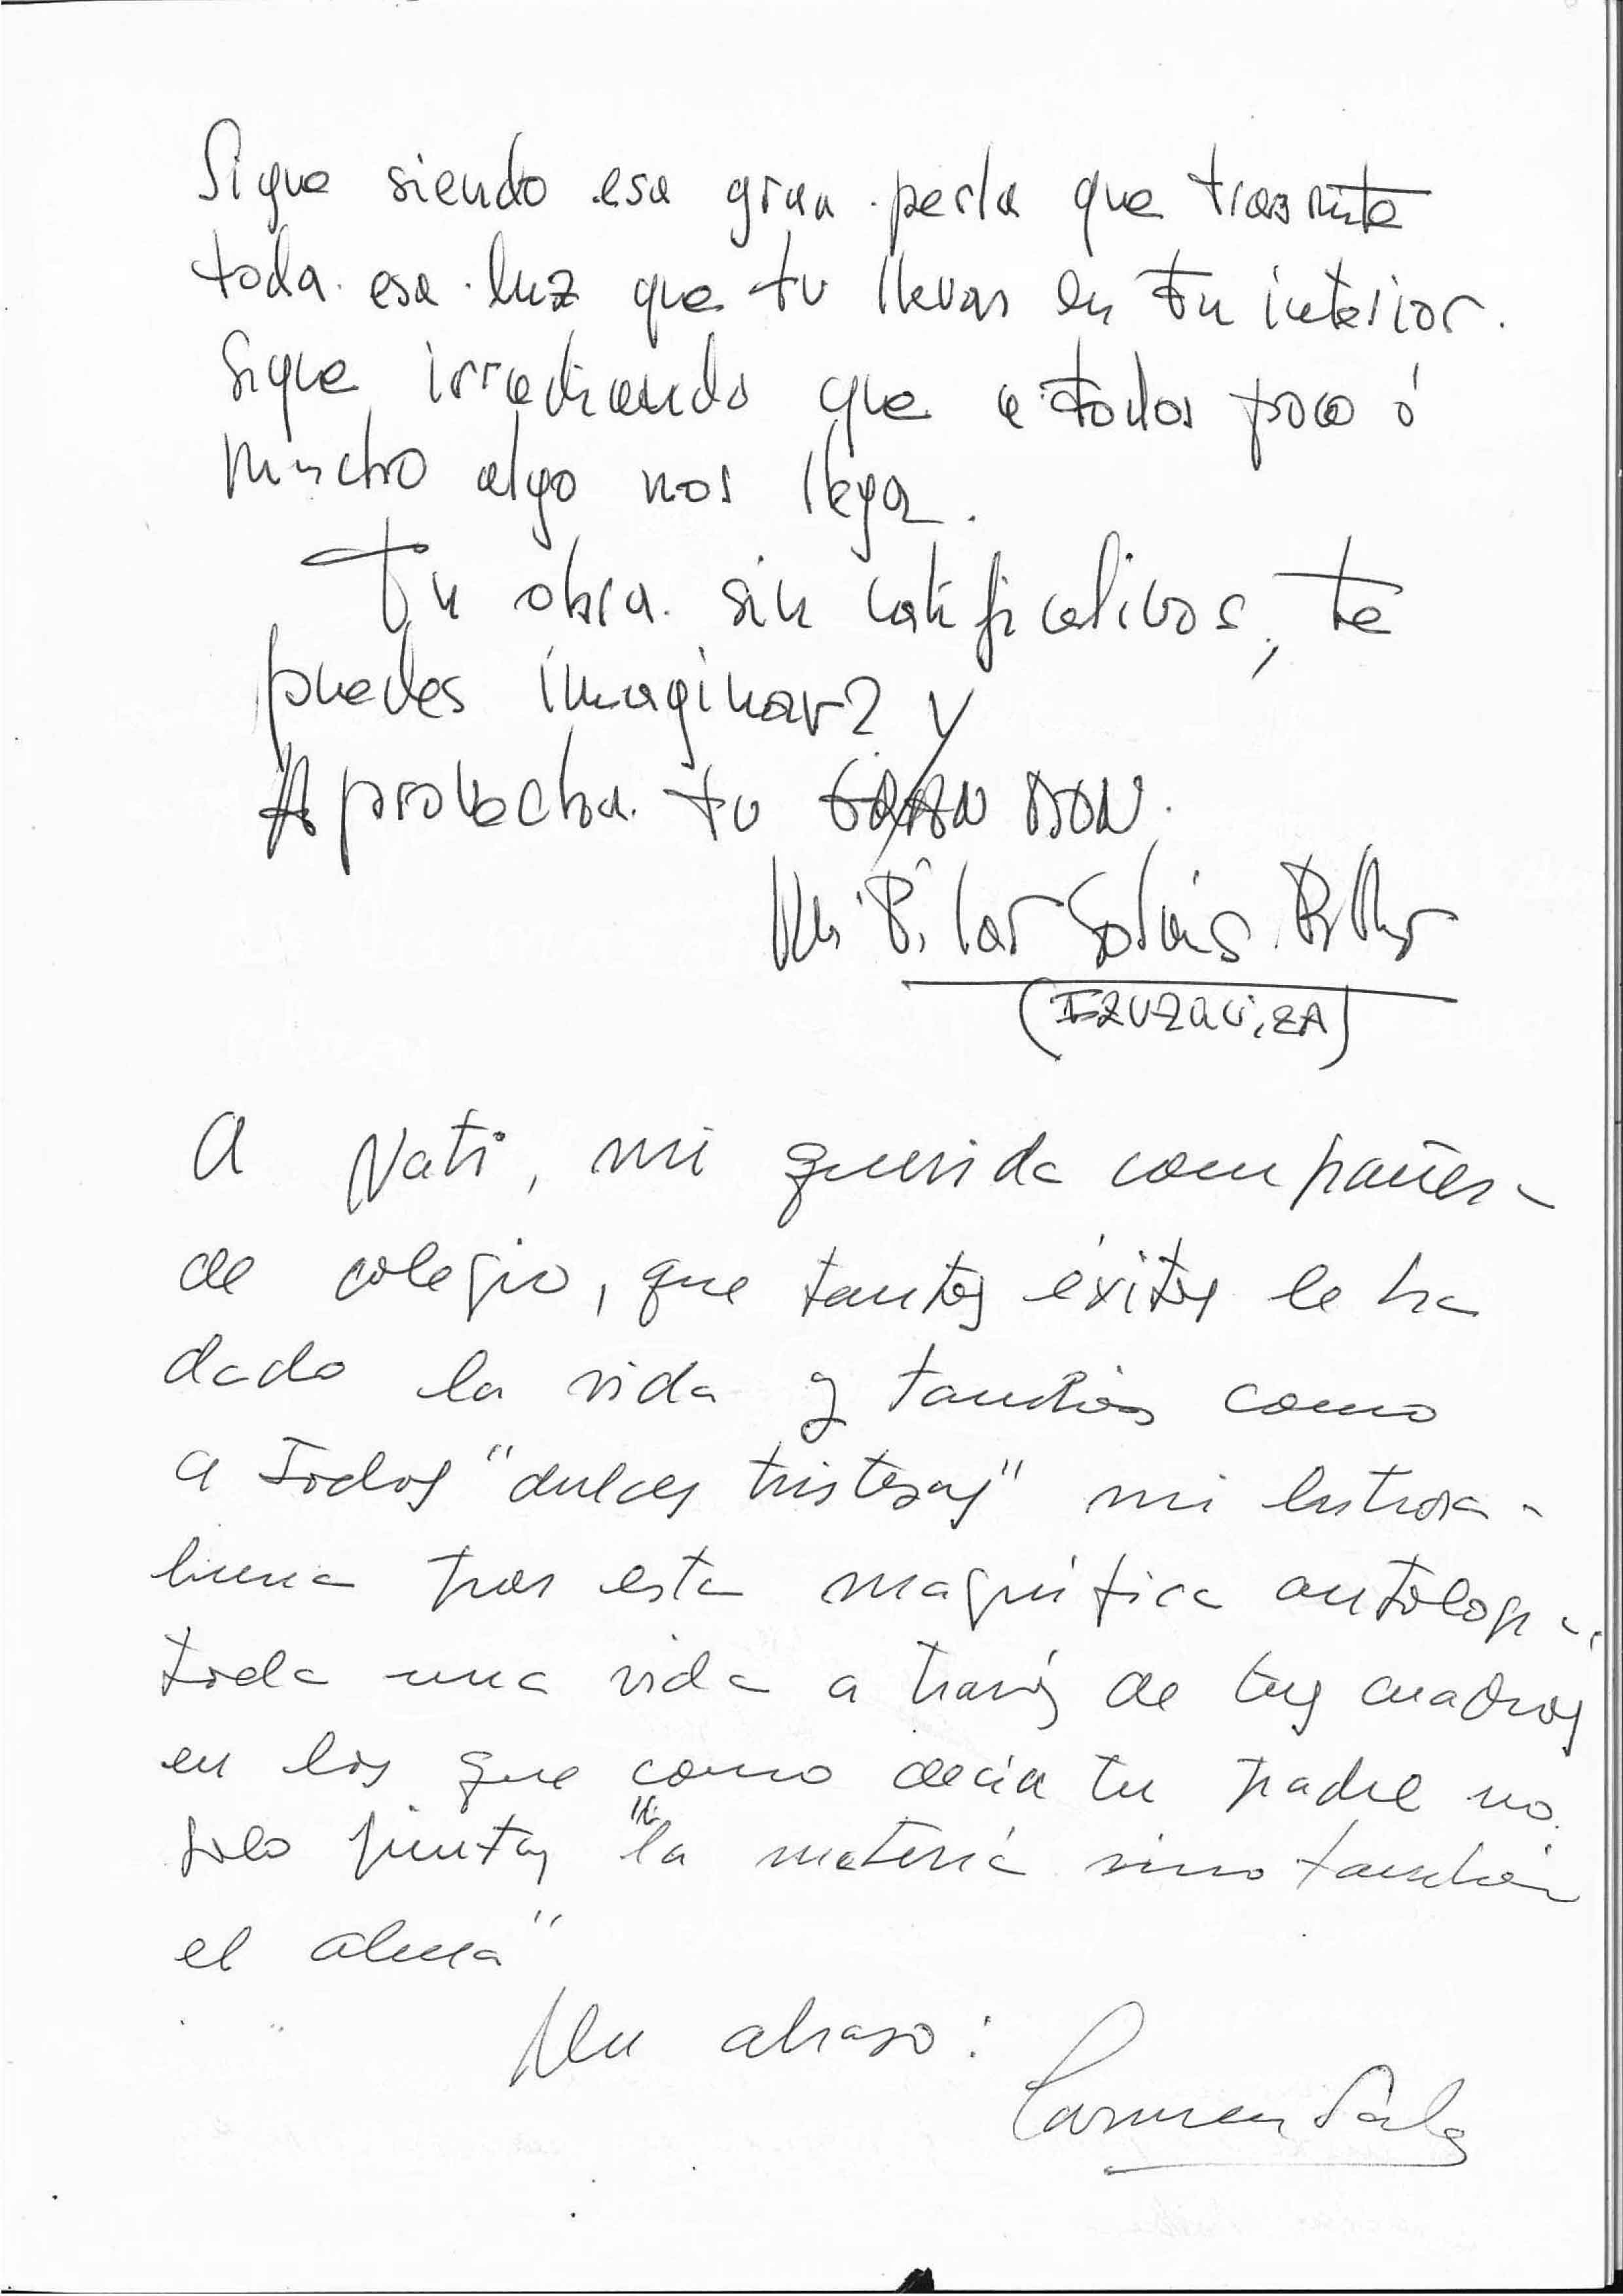 Sigue siendo esa gran perla que trasmite
toda esa luz que tu llevas en tu interior.
Sigue irradiando que a todos poco ó
mucho algo nos llega.
Tu obra sin calificativos, te
puedes imaginar? y
Aprovecha tu GRAN DON.
Mª Pilar Solís
A Nati, mi querida compañera
de colegio, que tantos éxitos le ha
dado la vida y también como
a todos "dulces tristezas" mi enhora-
buena por esta magnífica antología,
toda una vida a través de tus cuadros
en los que como decía tu padre no
solo pintas "la materia sino también
el alma"
Un abrazo:
Carmen